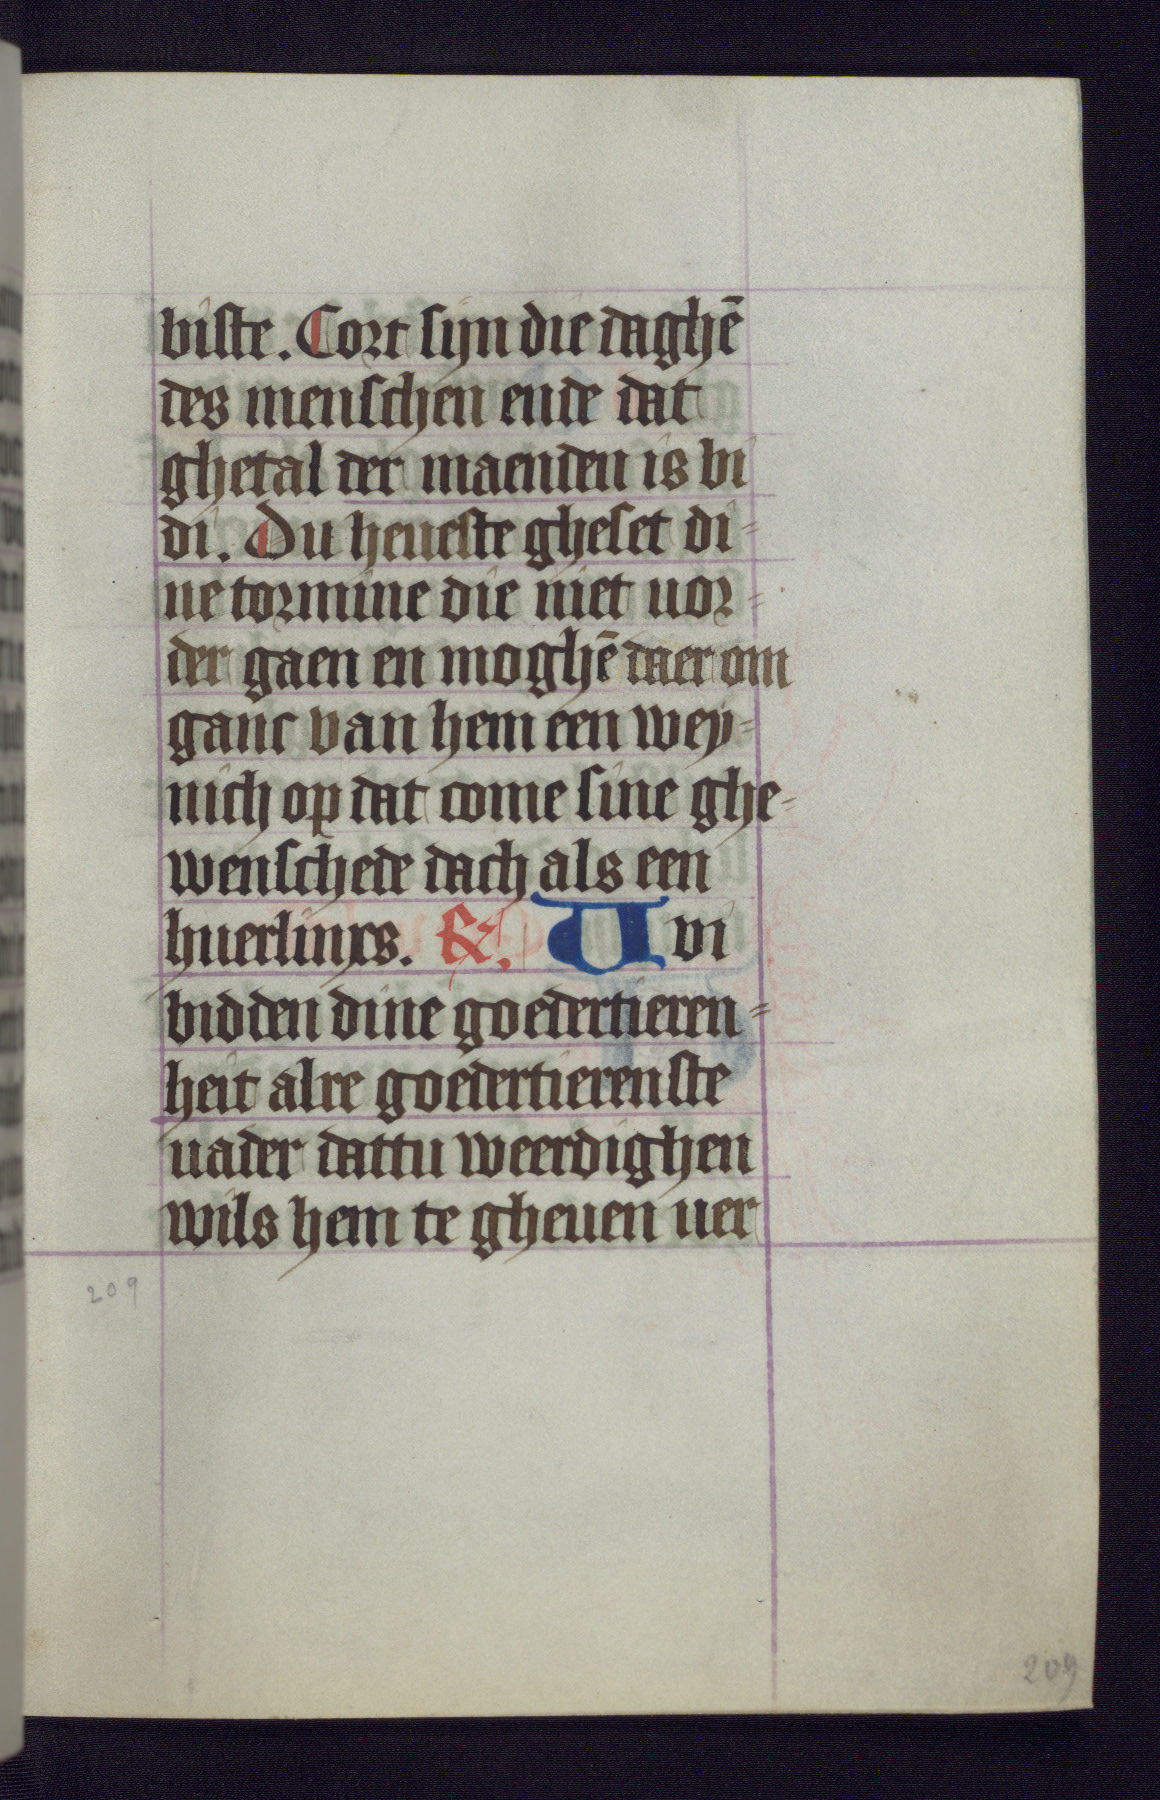 biste. Cort sijn die daghē
des menschen ende dat
ghetal der maenden is bi
di. Du heueste gheset di⸗
ne tormine die niet uor⸗
der gaen en moghē daer om
ganc van hem een wey⸗
nich op dat come sine ghe⸗
wenschede dach als een
huerlincs. R. U vi
bidden dine goedertieren⸗
heit alre goedertierenste
uader dattu weerdighen
wils hem te gheuen uer
209
209